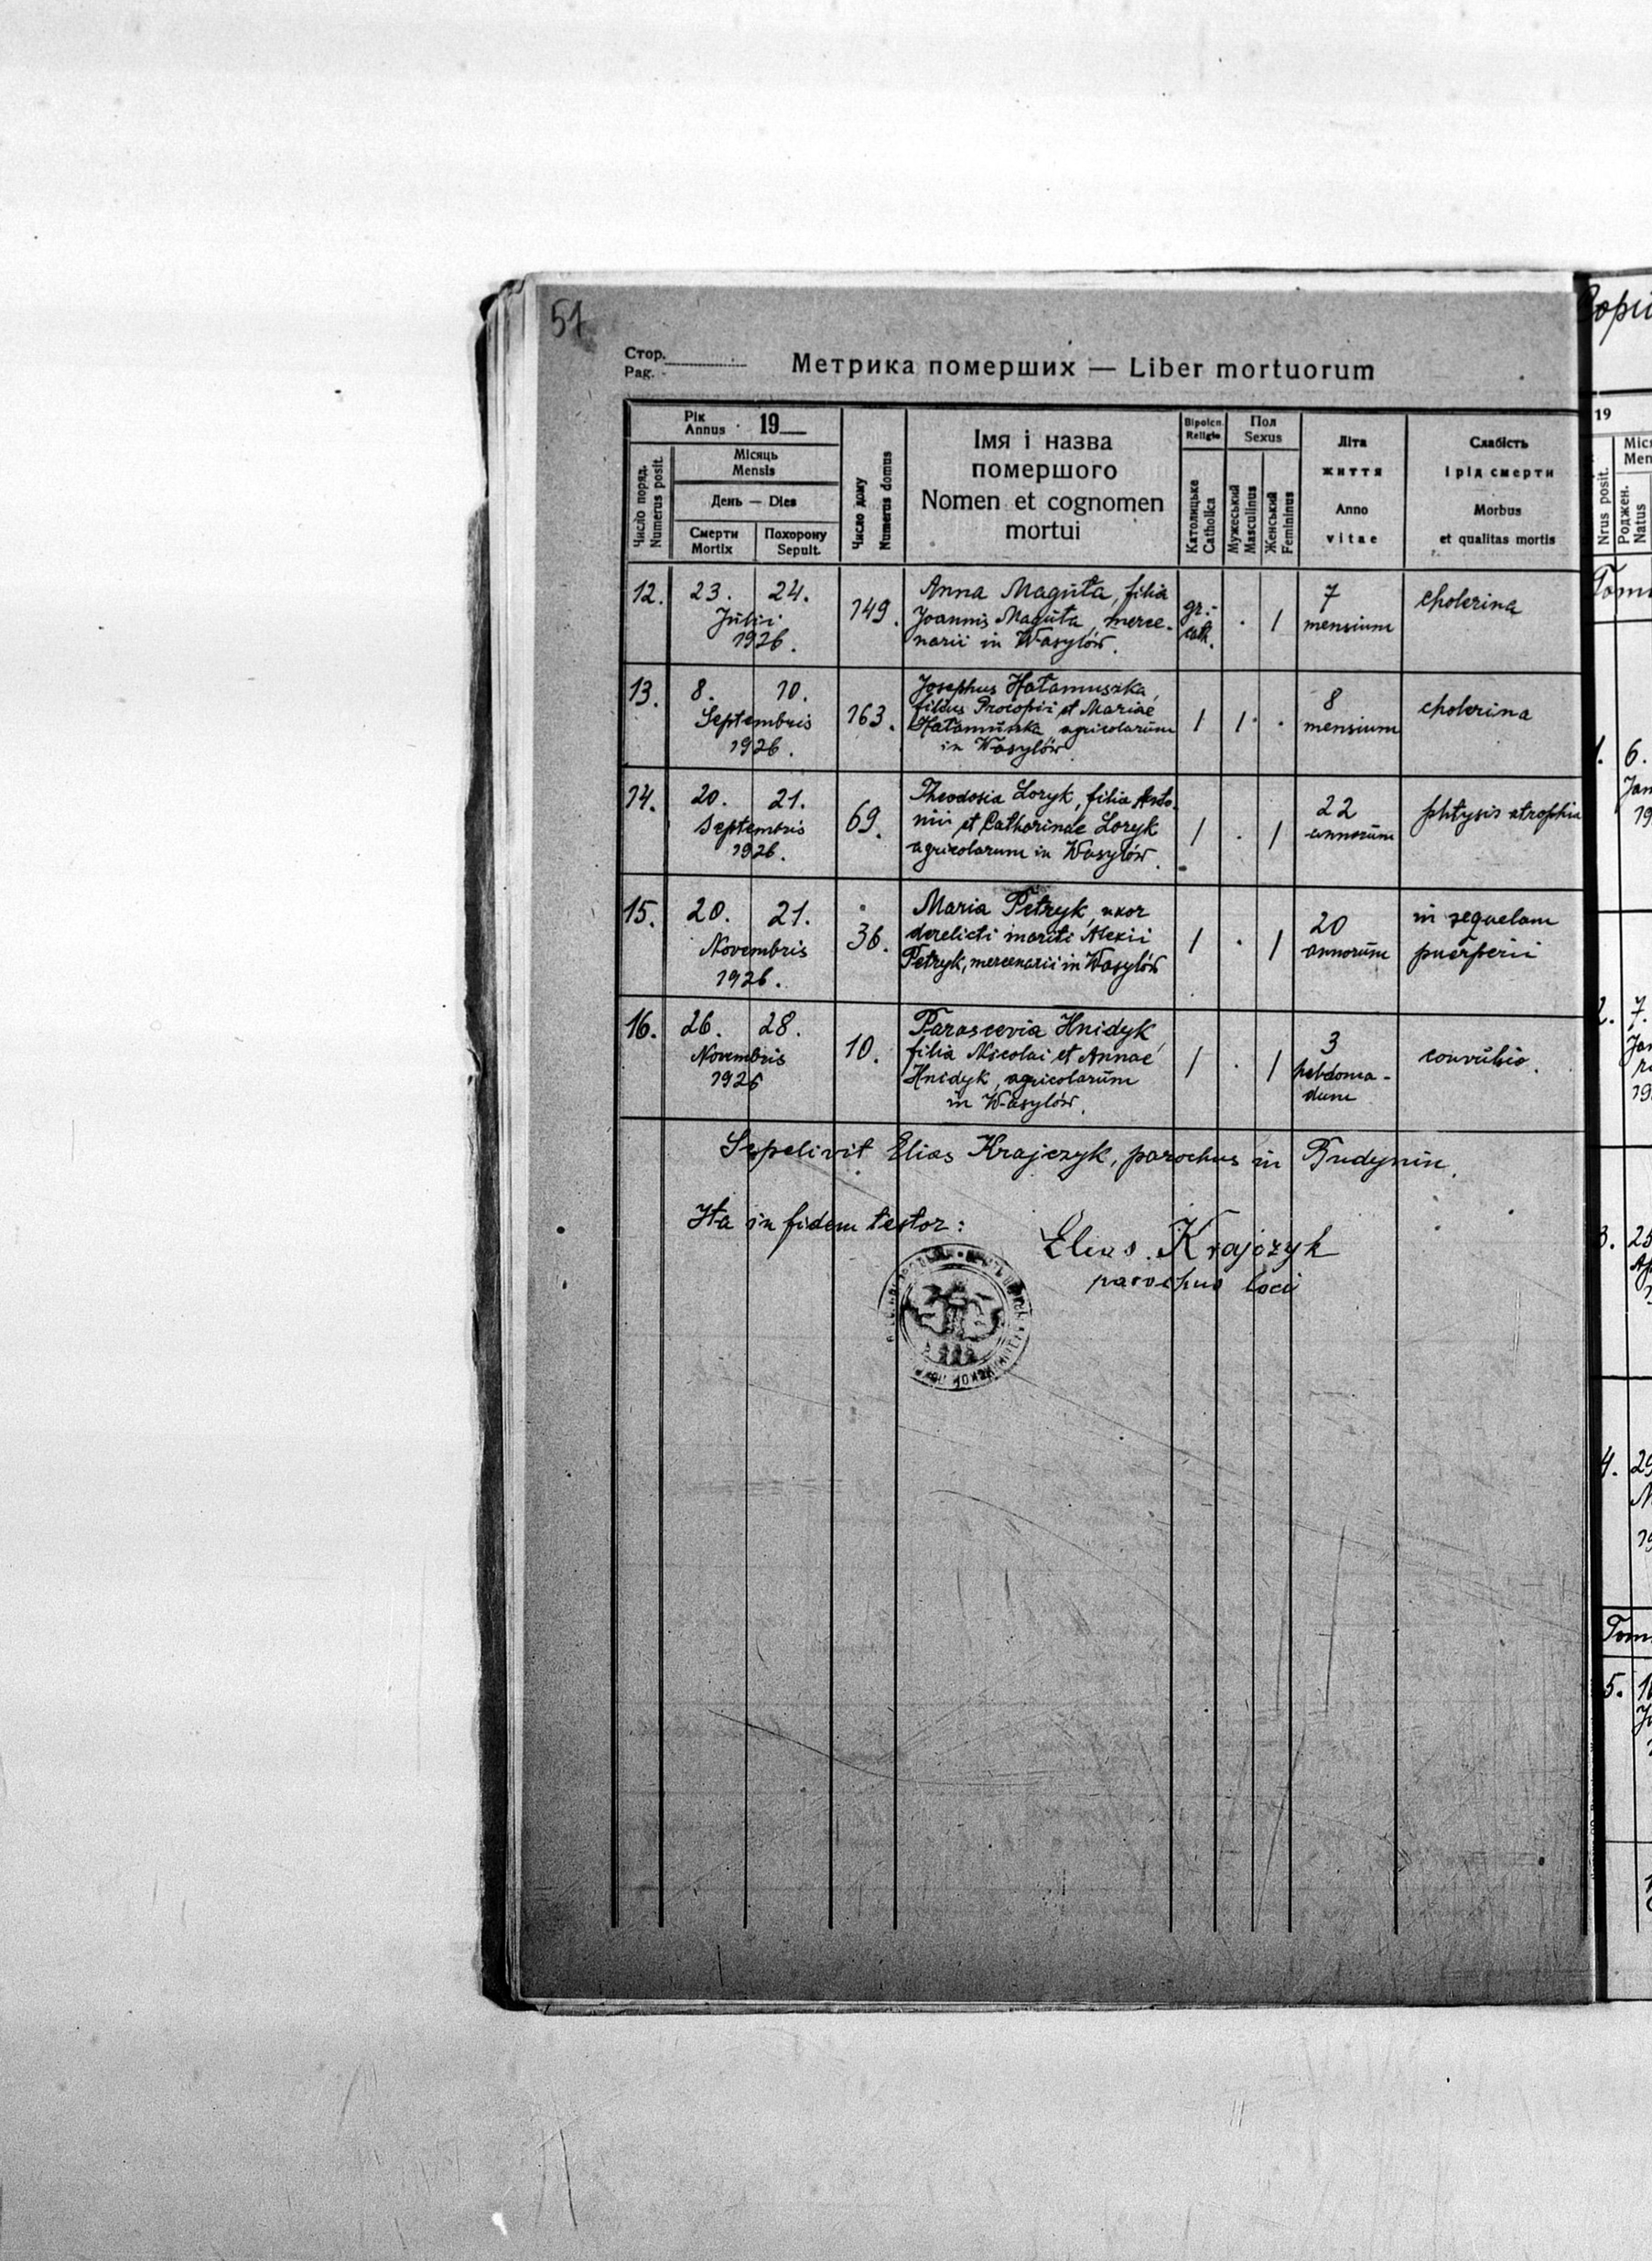 51
Стор.
Pag.
Метрика померших — Liber mortuorum
Рік
Annus 19
Місяць
Mensis
День — Dies
Число поряд.
Numerus posit.
Смерти
Mortix
Похорону
Sepult.
Число дому
Numerus domus
Імя і назва
помершого
Nomen et cognomen
mortui
Віроісп.
Religio
Католицьке
Catholica
Пол
Sexus
Мужеський
Masculinus
Женський
Femininus
Літа
життя
Anno
vitae
Слабість
і рід смерти
Morbus
et qualitas mortis
12. 23. 24.
Julii
1926.
149.
Anna Maguta, filia
Joannis Maguta, merce-
narii in Wasylów.
gr.-
cath.
. /
7
mensium
cholerina
13. 8. 10.
Septembris
1926.
163.
Josephus Hałamuszka,
filius Procopii et Mariae
Hałamuszka agricolarum
in Wasylów
/ / .
8
mensium
cholerina
14. 20. 21.
Septembris
1926.
69.
Theodosia Loryk, filia Anto-
nii et Catharinae Loryk
agricolarum in Wasylów.
/ . /
22
annorum
phtysis atrophia
15. 20. 21.
Novembris
1926.
36.
Maria Petryk, uxor
derelicti mariti Alexii
Petryk, mercenarii in Wasylów
/ . /
20
annorum
in sequelam
puerperii
16. 26. 28.
Novembris
1926
10.
Parascevia Hnidyk,
filia Nicolai et Annae
Hnidyk, agricolarum
in Wasylów.
/ . /
3
hebdoma-
dum
convulsio.
Sepelivit Elias Krajczyk, parochus in Budynin.
Ita in fidem testor:
Elias Krajczyk
parochus loci
19
Nrus posit.
Роджен.
Natus
1. 6.
2. 7.
3. 25
4. 29
5.